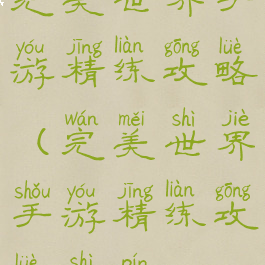 完美世界手
yóu jīng liàn gōng lüè
游精练攻略
wán měi shì jiè
（完美世界
shǒu yóu jīng liàn gōng
手游精练攻
lüè shì pín